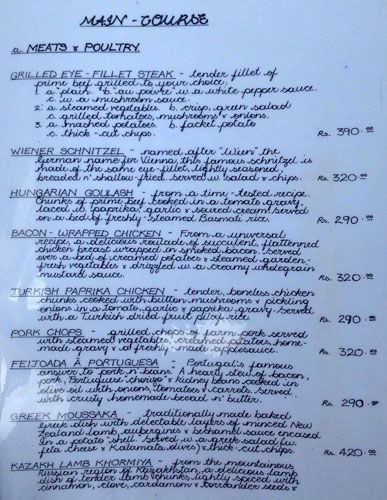 MAIN - COURSE
a. MEATS & POULTRY
GRILLED EYE - FILLET STEAK - tender fillet of
prime beef grilled to your choice.
1. a "plain" b. "au poivre" w. a white pepper sauce.
c. w. a mushroom sauce.
2. a steamed vegetables b. crisp, green salad
c. grilled tomatoes, mushrooms & onions.
3. a mashed potatoes b. jacket potato
c. thick - cut chips. Rs. 390.00
WIENER SCHNITZEL - named after "Wien" the
german name for Vienna, this famous schnitzel is
made of the same eye-fillet, lightly seasoned,
breaded n' shallow-fried. Served w. salad & chips. Rs. 320.00
HUNGARIAN GOULASH - from a time-tested recipe.
Chunks of prime beef cooked in a tomato gravy
laced w. paprika, garlic & soured cream served
on a bed of freshly-steamed Basmati rice. Rs. 290.00
BACON - WRAPPED CHICKEN - From a universal
recipe, a delicious roulade of succulent, flattened
chicken breast wrapped in smoked bacon. Served
over a bed of creamed potatoes & steamed garden-
fresh vegetables & drizzled w. a creamy wholegrain
mustard sauce. Rs. 320.00
TURKISH PAPRIKA CHICKEN - tender, boneless chicken
chunks cooked with button mushrooms & pickling
onions in a tomato, garlic & paprika gravy. Served
with a Turkish dried fruit pilaf rice. Rs. 290.00
PORK CHOPS - grilled chops of farm pork served
with steamed vegetables, creamed potatoes, home-
made gravy & a freshly-made applesauce. Rs. 320.00
FEIJOADA À PORTUGUESA - Portugal's famous
answer to 'pork n' beans'. A hearty stew of bacon,
pork, Portuguese 'chorizo' & kidney beans cooked in
olive oil with onions, tomatoes & carrots. Served
with crusty homemade bread n' butter. Rs. 290.00
GREEK MOUSSAKA - traditionally made baked
Greek dish with delectable layers of minced New
Zealand lamb, aubergines & bechamel sauce encased
in a potato "shell". Served w. a greek salad (w.
feta cheese & Kalamata olives) & thick-cut chips. Rs. 420.00
KAZAKH LAMB KHORMIYA - from the mountainous
Russian region of Kazakhstan, a delicious lamb
dish of tender lamb chunks lightly spiced with
cinnamon, clove, cardamom & corriander seeds &